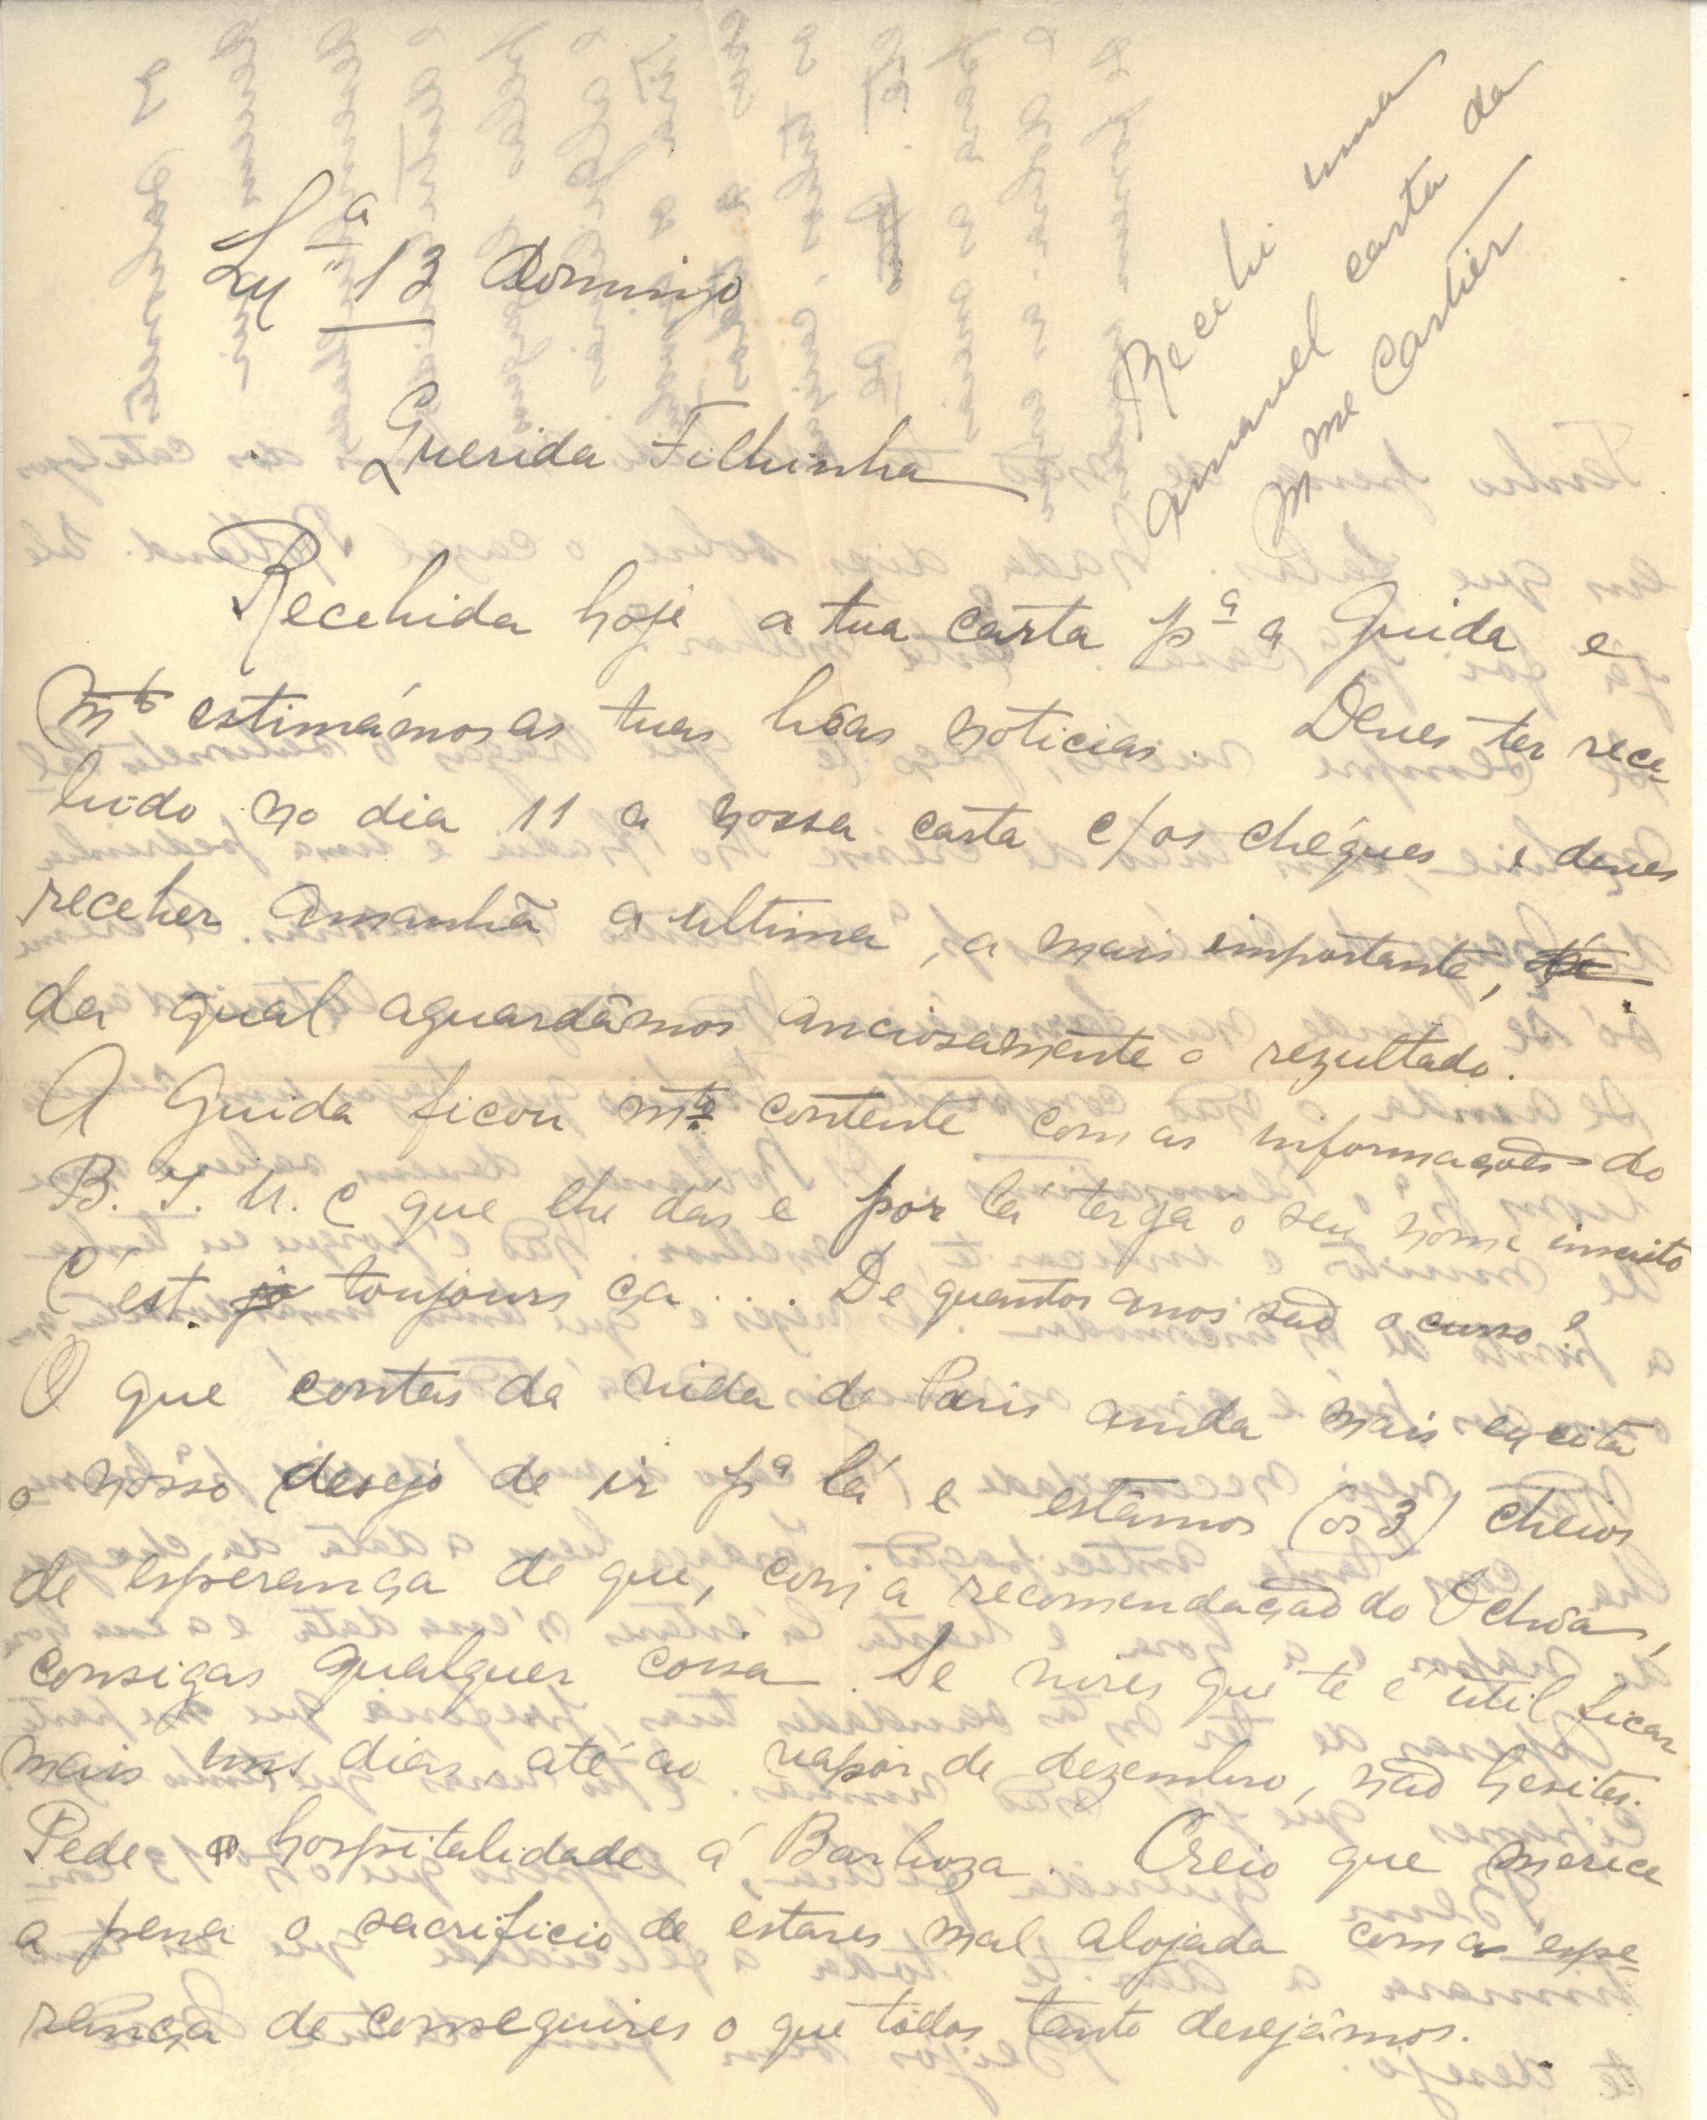 Lxª 13 Domingo
Recebi uma
amavel carta da
Mme Cartier
Querida Filhinha
Recebida hoje a tua carta pª a Guida e
Mtº estimámos as tuas bôas noticias. Deves ter rece
bido no dia 11 a nossa carta c/os chéques e deves
receber amanhã a ultima, a mais importante,
da qual aguardâmos anciosamente o rezultado.
A Guida ficou mtº contente com as informações do
B. I. U. C que lhe dás e por lá terga o seu nome inscrito
C'est toujours ça.... De quantos anos são o curso?
O que contas da vida de Paris ainda mais excita
o nosso desejo de ir pª lá e estâmos (os 3) cheios
de esperança de que, com a recomendação do Ochôa,
consigas qualquer coisa. Se vires que te é util ficar
mais uns dias, até ao vapôr de dezembro, não hesites.
Pede hospitalidade á Barboza. Creio que merece
a pena o sacrificio de estares mal alojada com a espe
rança de conseguires o que tôdos tanto desejâmos.